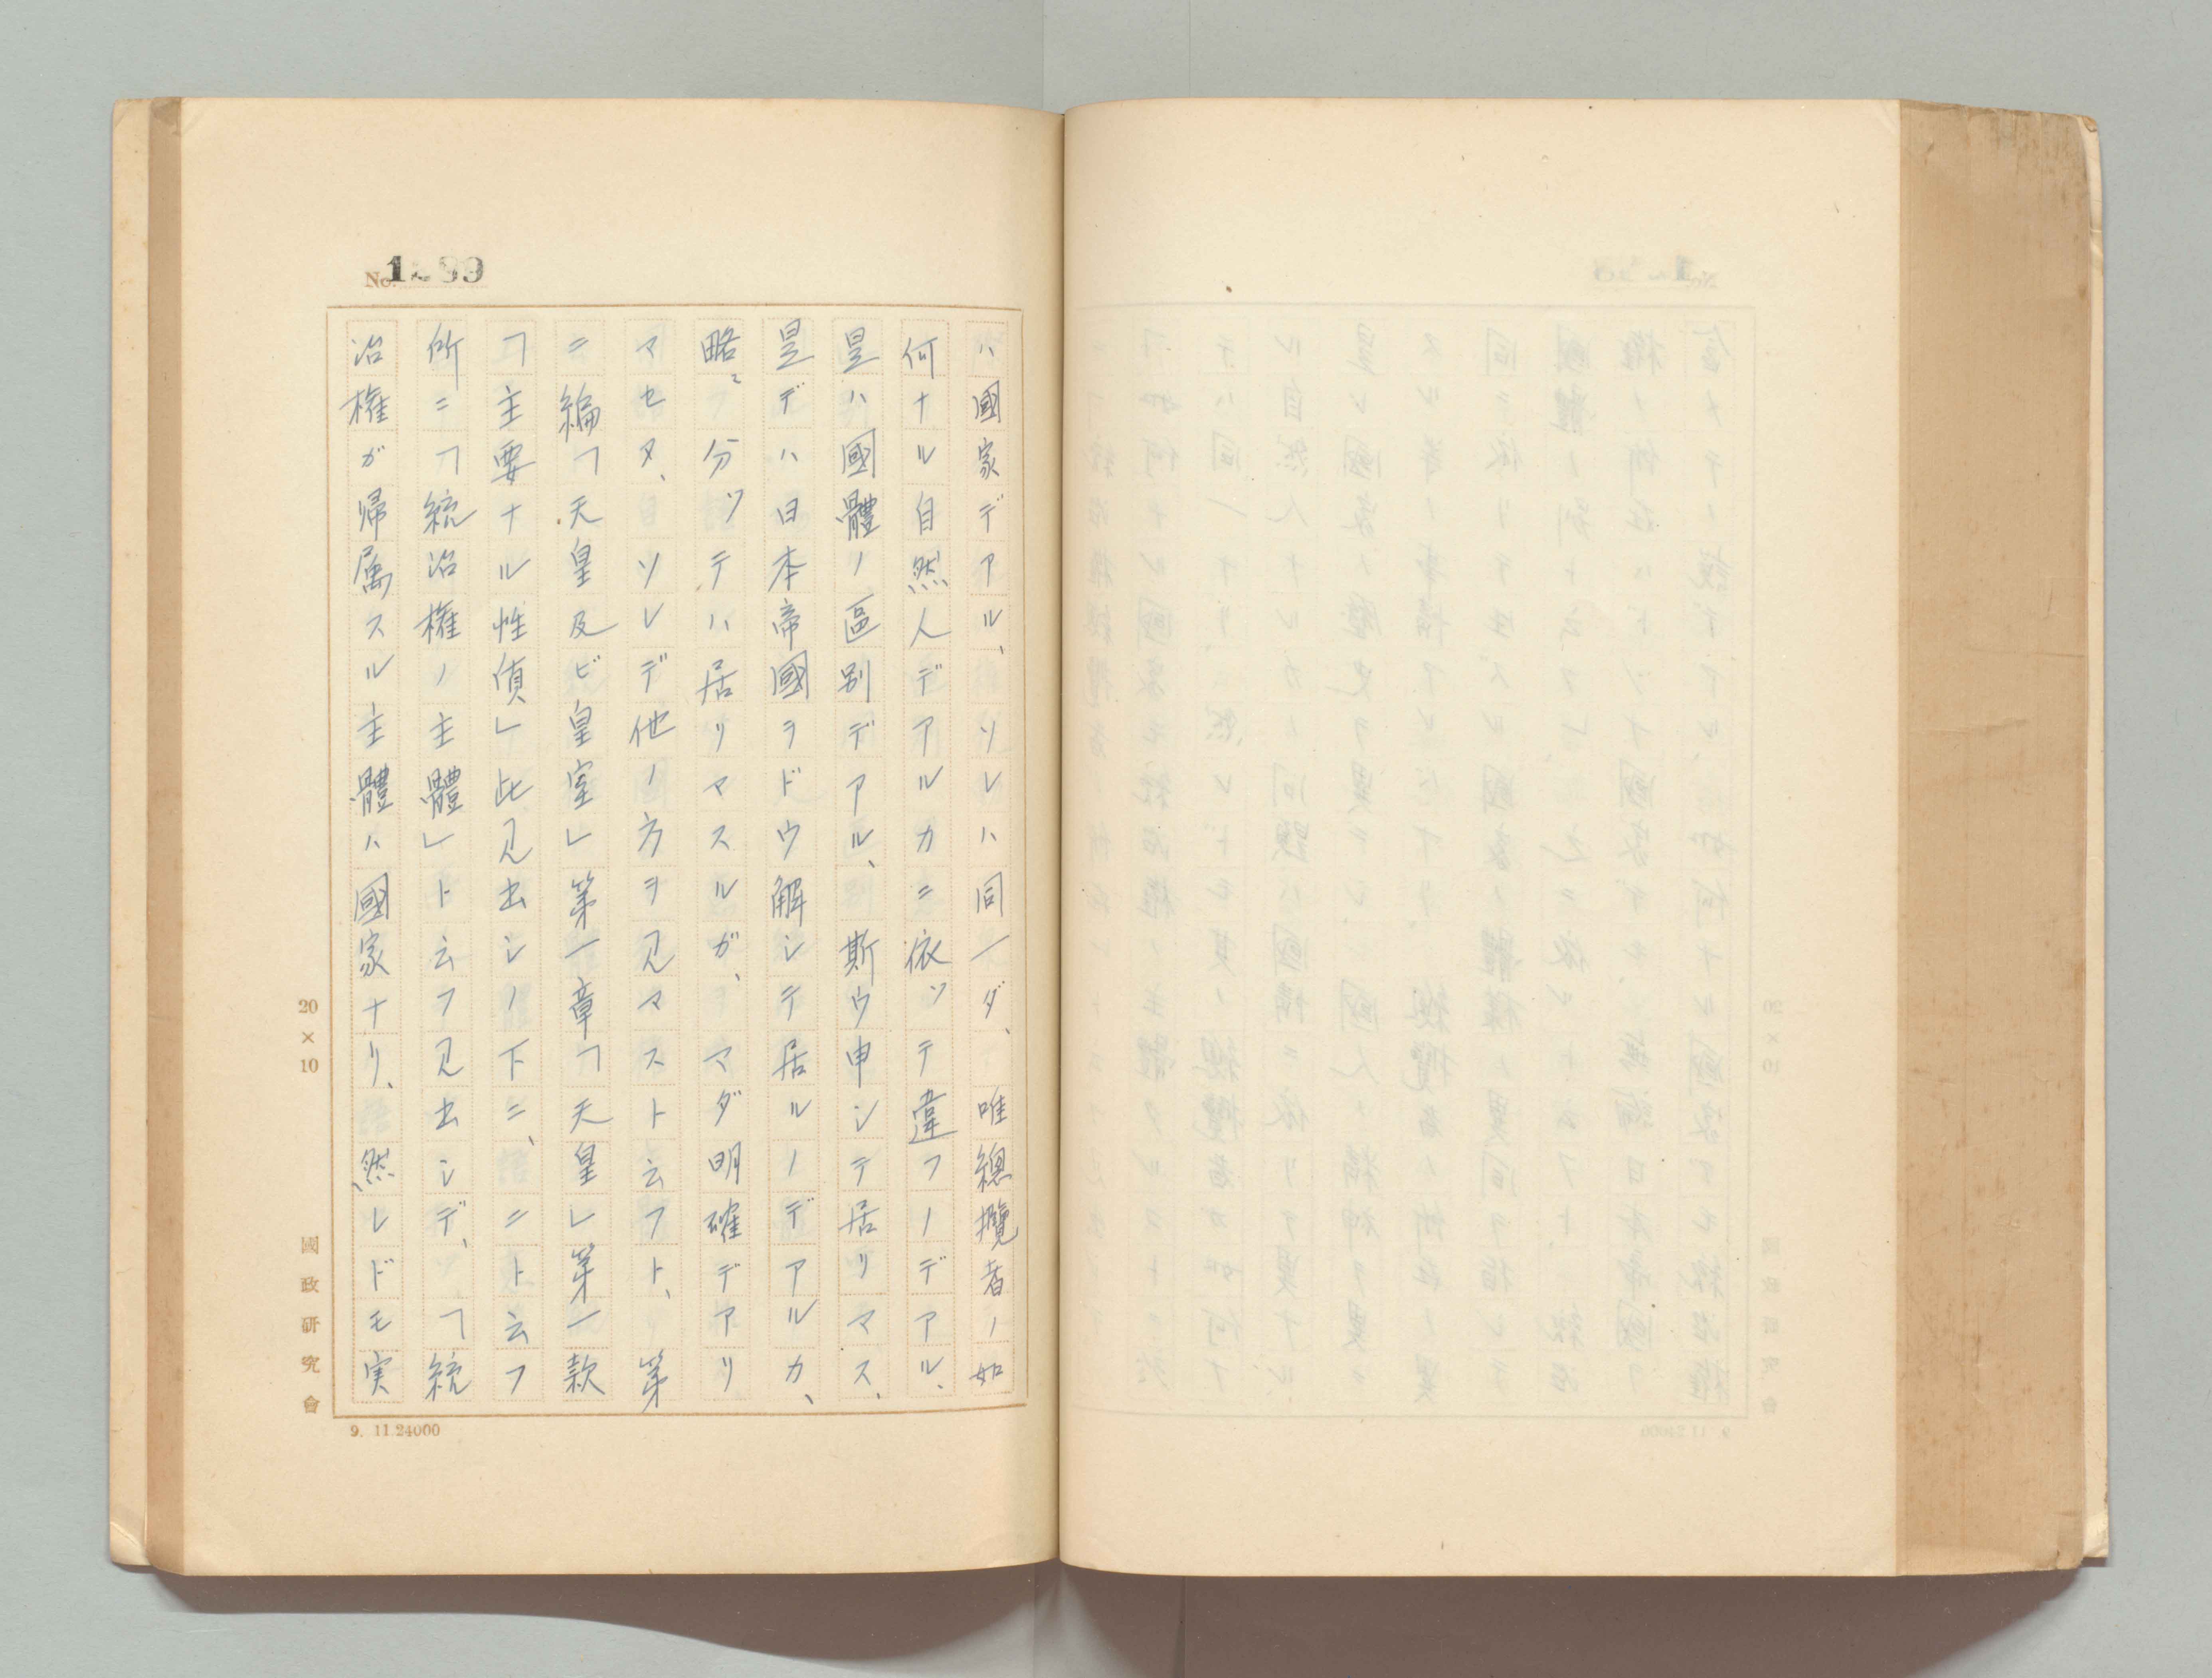 No. 1299
ハ國家デアル、ソレハ同一ダ、唯總攬者ノ如
何ナル自然人デアルカニ依ッテ違フノデアル、
是ハ國體ノ區別デアル、斯ウ申シテ居リマス、
是デハ日本帝國ヲドウ解シテ居ルノデアルカ、
略〻分ッテハ居リマスルガ、マダ明確デアリ
マセヌ、ソレデ他ノ方ヲ見マスト云フト、第
二編「天皇及ビ皇室」第一章「天皇」第一款
「主要ナル性質」此見出シノ下ニ、ニト云フ
所ニ「統治權ノ主體」ト云フ見出シデ、「統
治權ガ帰属スル主體ハ國家ナリ、然レドモ実
20×10
國政研究會
9. 11.24000